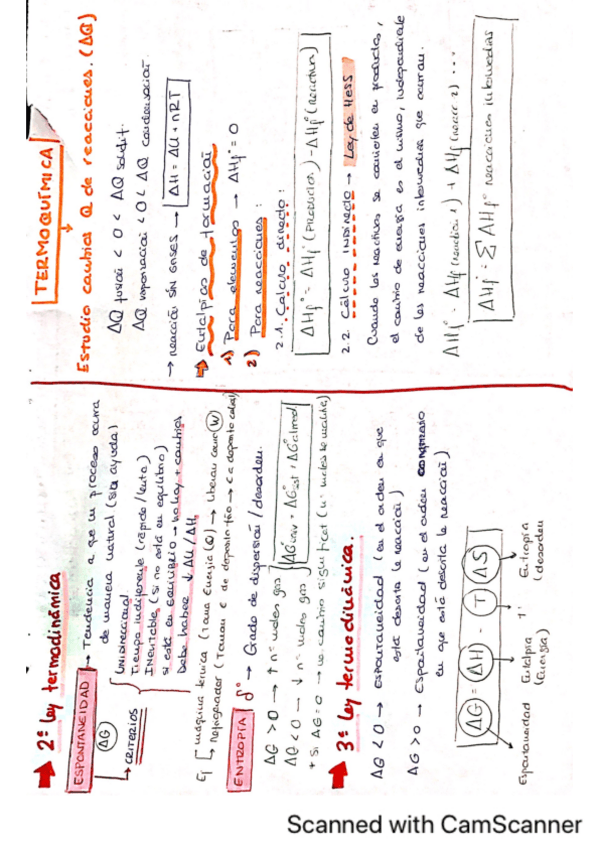 TERMOQUÍMICA
Estudio cambios Q de reacciones. (ΔQ)
ΔQ fusión < 0 < ΔQ solidif.
ΔQ vaporización < 0 < ΔQ condensación
→ reacción SIN GASES → ΔH = ΔU + nRT
→ Entalpías de formación
1) Para elementos → ΔHf° = 0
2) Para reacciones:
2.1. Cálculo directo:
ΔHf° = ΔHf°(productos) - ΔHf°(reactivos)
2.2. Cálculo INDIRECTO → Ley de HESS
Cuando los reactivos se convierten en productos,
el cambio de energía es el mismo, independiente
de las reacciones intermedias que ocurran.
ΔHf° = ΔHf (reacción 1) + ΔHf (reacc 2) ...
ΔHf° = ∑ ΔHf° reacciones intermedias
→ 2ª Ley termodinámica
ESPONTANEIDAD → Tendencia a que un proceso ocurra
ΔG de manera natural (sin ayuda)
→ CRITERIOS
Unidireccional
Tiempo indiferente (rápido/lento)
Inevitable (si no está en equilibrio)
si está en equilibrio → no hay + cambios
Debe haber ↓ΔU/ΔH
Ej máquina térmica (Toma Energía (Q) → liberan como W)
Refrigerador (Toman E de depósito frío → E a depósito cálido)
ENTROPÍA S° → Grado de dispersión/desorden.
ΔG > 0 → ↑ nº moles gas
ΔG < 0 → ↓ nº moles gas
+ Si ΔG = 0 → no cambio significat (nº moles se mantiene)
→ 3ª Ley termodinámica.
ΔG < 0 → espontaneidad (en el orden en que
está descrita la reacción)
ΔG > 0 → Espontaneidad (en el orden contrario
en que está descrita la reacción)
ΔG = ΔH - T ΔS
Espontaneidad Entalpía Tª Entropía
(energía) (desorden
Scanned with CamScanner